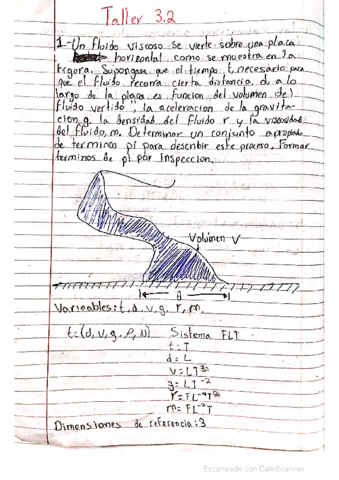 Taller 3.2
1.- Un fluido viscoso se vierte sobre una placa
horizontal como se muestra en la
figura. Supongase que el tiempo t, necesario para
que el fluido recorra cierta distancia, d, a lo
largo de la placa es funcion del volumen del
fluido vertido v, la aceleracion de la gravita-
cion, g, la densidad del fluido r y la viscosidad
del fluido, m. Determinar un conjunto apropiado
de terminos pi para describir este proceso. Formar
terminos de pi por Inspeccion.
Volumen V
Variables: t, d, v, g, r, m.
t=(d, V, g, ρ, N) Sistema FLT
t= T
d= L
g= LT⁻²
r= FL⁻⁴T²
m= FL⁻²T
Dimensiones de referencia: 3
Escaneado con CamScanner